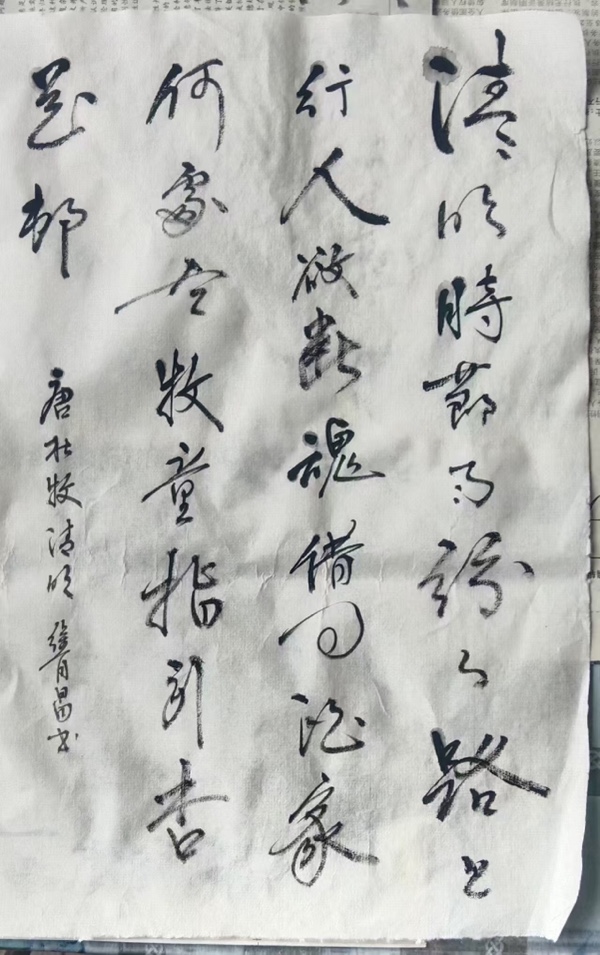 清明時節雨紛々路上
行人欲断魂借问酒家
何處有牧童指引杏
花邨
唐杜牧清明 昌书